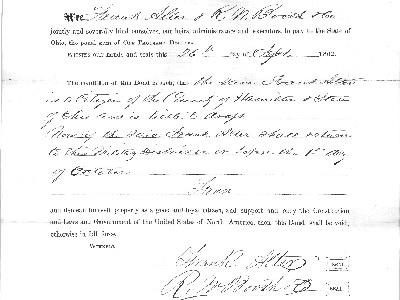 We Frank Alter & R. M. Booth & Co
jointly and severally bind ourselves, our heirs, administrators and executors, to pay to the State of
Ohio, the penal sum of One Thousand Dollars.
Witness our hands and seals this 26th day of Sept 1862.
The condition of this Bond is such, that the Said Frank Alter
is a Citizen of the County of Hamilton & State
of Ohio and is
Now if the Said Frank Alter shall return
to this Military or before the 1st day
of October
and demean himself properly as a good and loyal citizen, and support and obey the Constitution
and Laws and Government of the United States of North America, then this Bond shall be void,
otherwise in full force.
Witness.
Frank Alter SEAL
R. M. Booth & Co SEAL